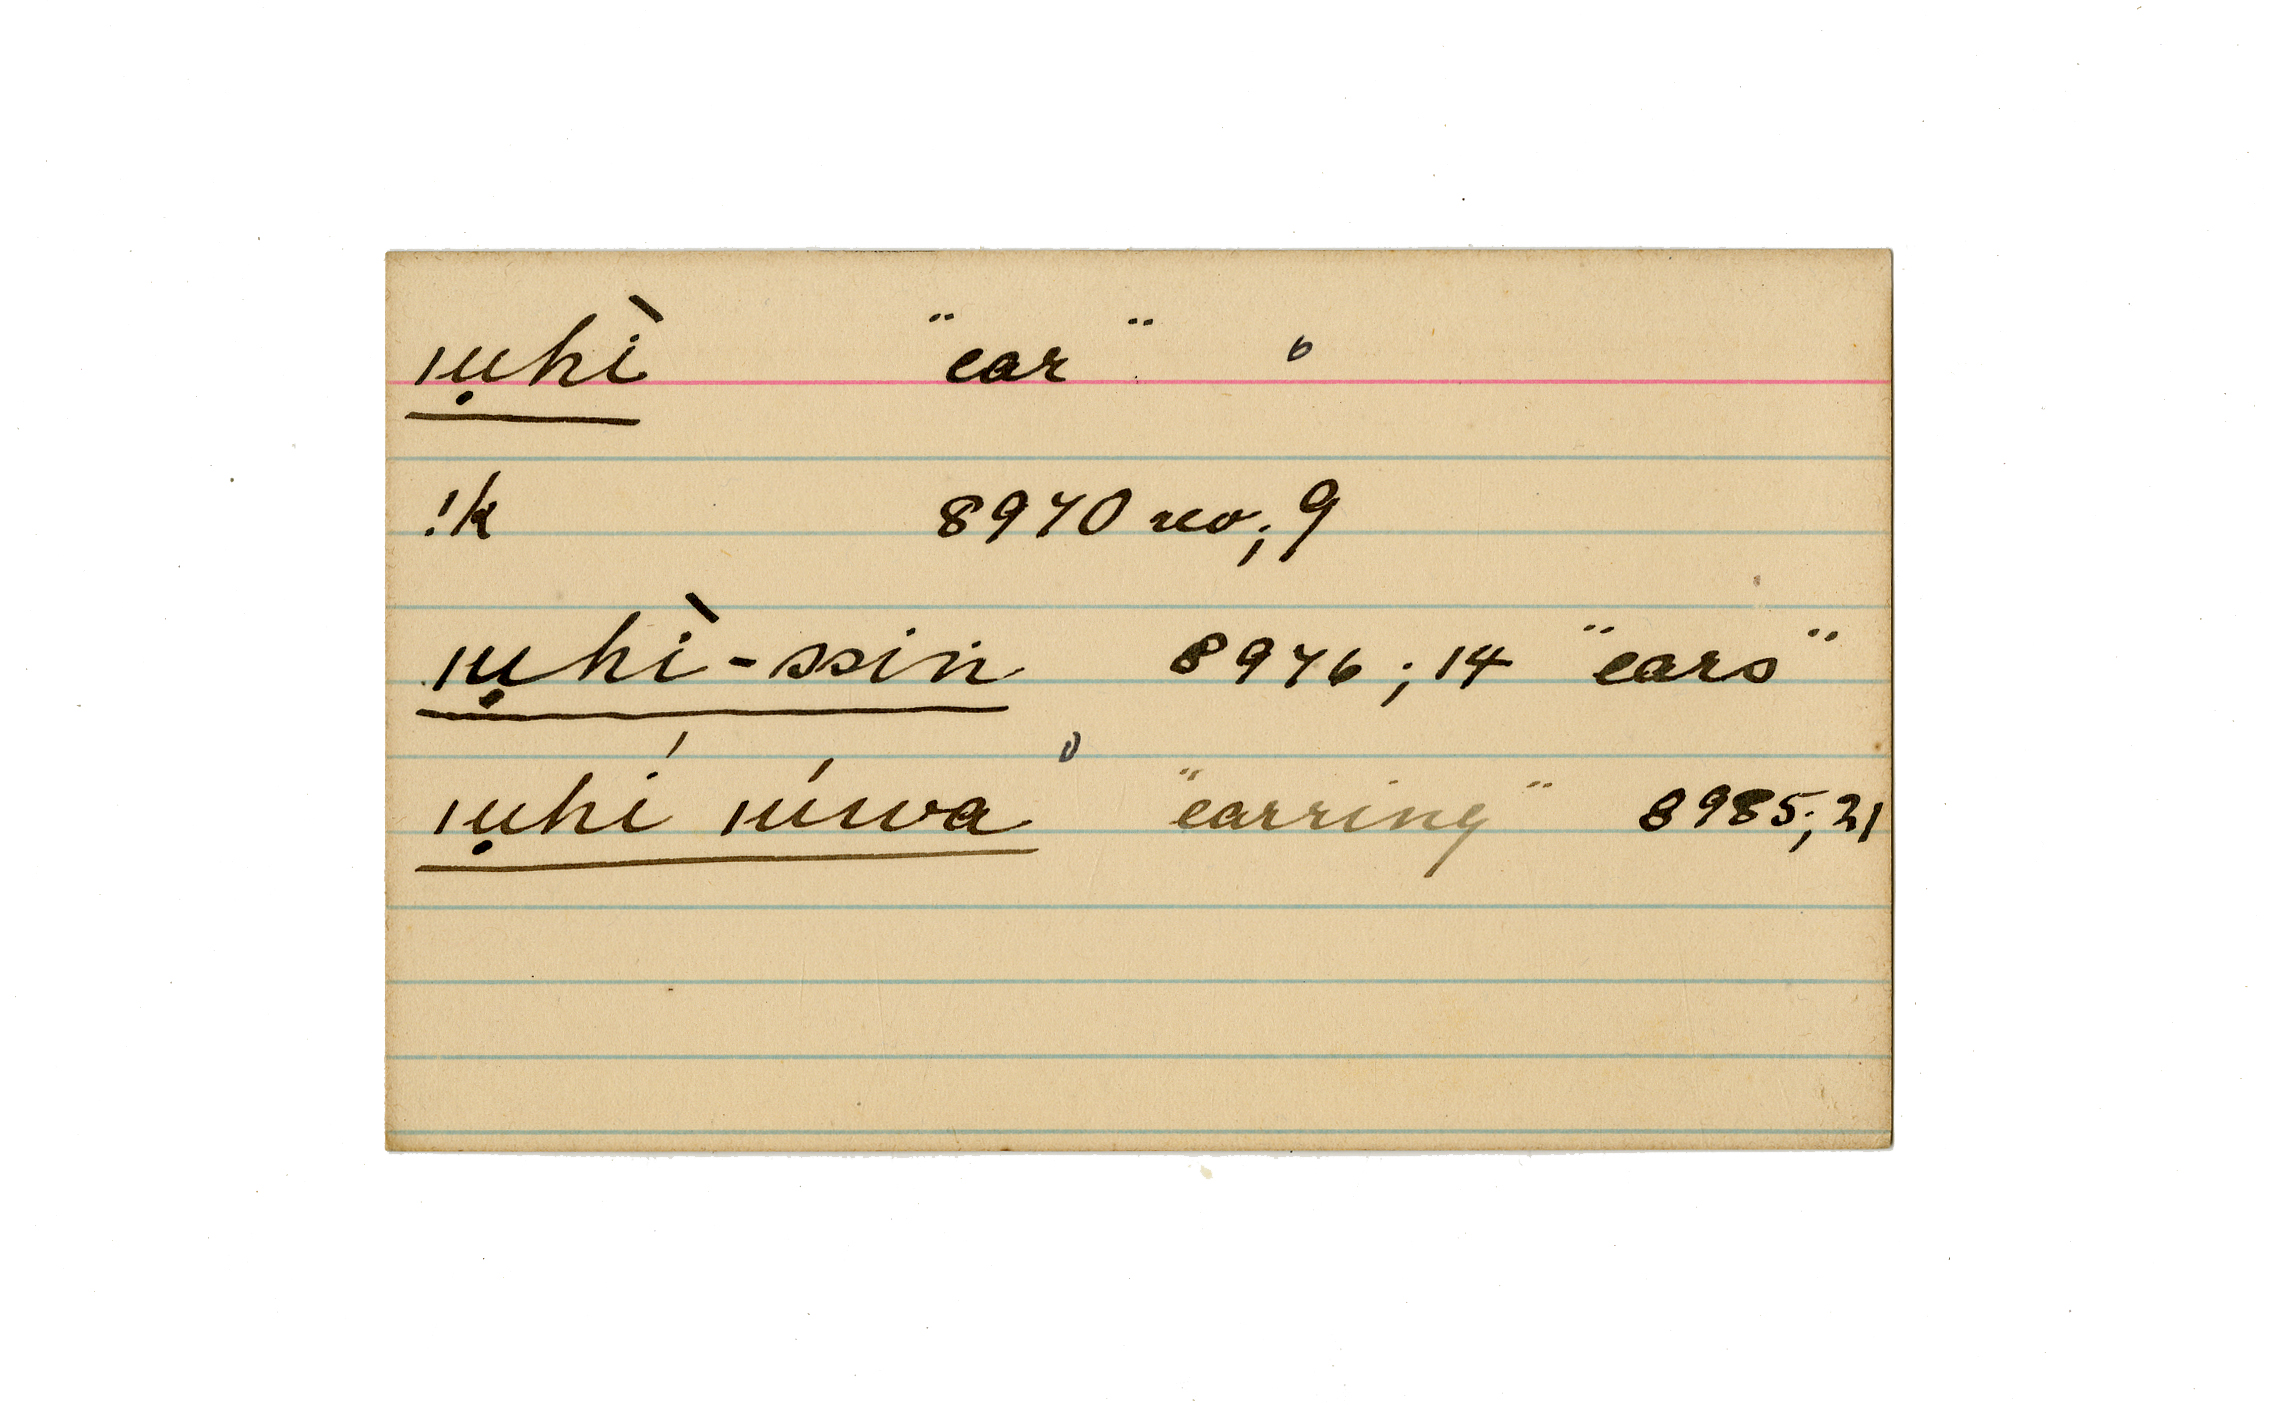 ıụhì "ear" 6
!k 8970 rev; 9
ıụhì-ssin 8976; 14 "ears"
ıụhí ıúwa "earring" 8985; 21